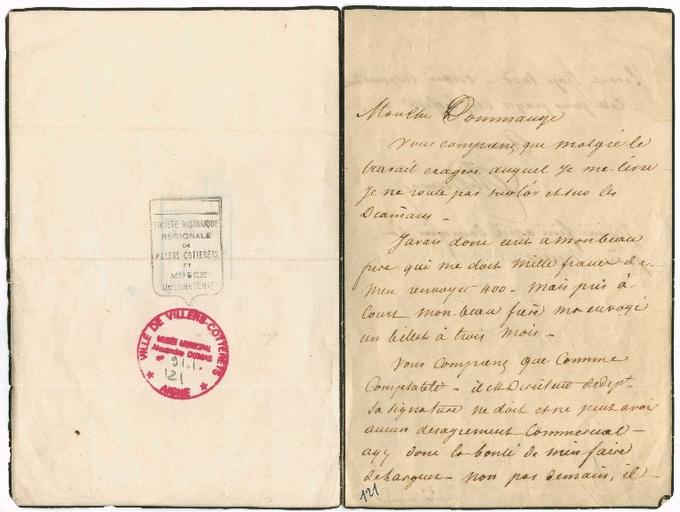 SOCIÉTÉ HISTORIQUE
RÉGIONALE
DE
VILLERS-COTTERÊTS
ET
MUSÉE
VILLE DE VILLERS-COTTERETS
MUSÉE MUNICIPAL
Alexandre DUMAS
91.1.
121
AISNE
Dommange
Vous comprenez que malgré le
travail exagéré auquel je me livre
je ne roule pas sur l'or et sur les
Diamans -
J'avais donc écrit a mon beau
frere qui me doit mille francs de
m'en renvoyer 400 - mais pris à
court mon beau frère m'a envoyé
un billet à trois mois -
Vous comprenez que comme
Comptable - il est Directeur
Sa signature ne doit et ne peut avoir
aucun desagrement Commercial -
ayez donc la bonté de m'en faire
le changeur - non pas demain, il
121